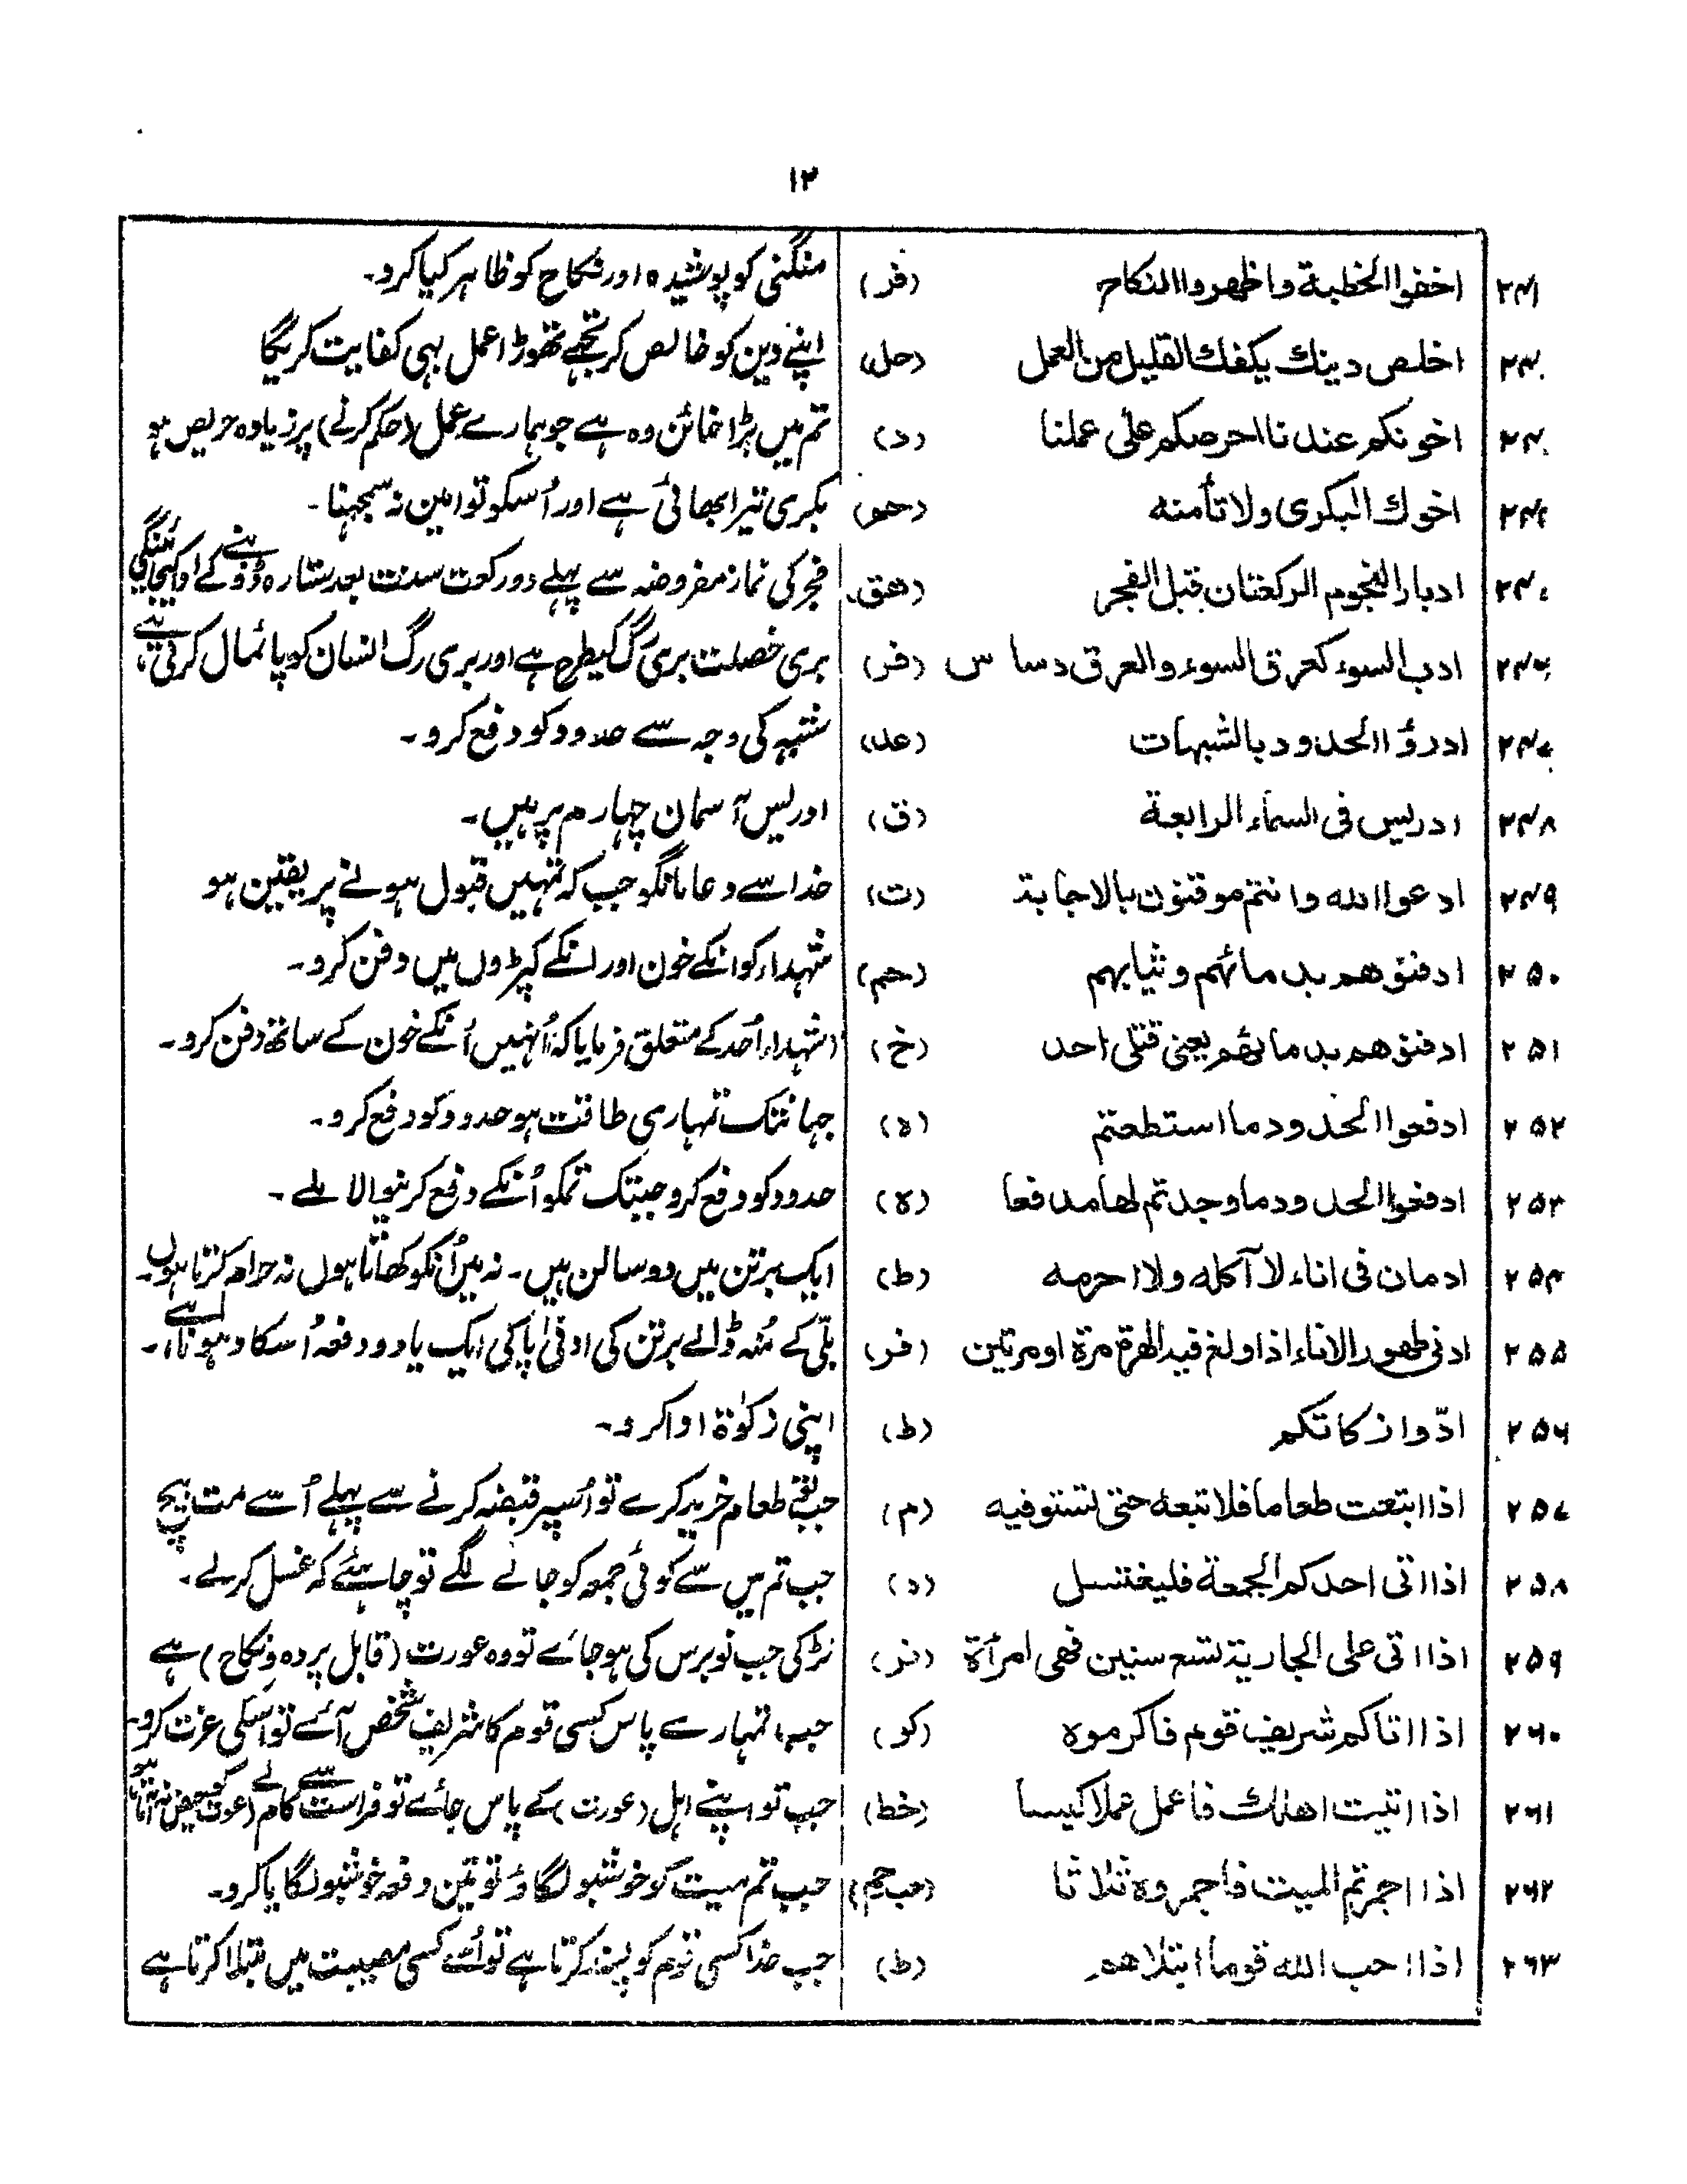 ۱۲
۲۴۱ اخفوا الخطبة واظهروا النكاح (فر) منگنی کو پوشیدہ اور نکاح کو ظاہر کیا کرو۔
۲۴ اخلص دينك يكفك القليل من العمل (حل) اپنے دین کو خالص کر تجھے تھوڑا عمل بہی کفایت کریگا
۲۴ اخونكم عندنا احرصكم على عملنا (د) تم میں بڑا خائن وہ ہے جو ہمارے عمل (حکم کرنے) پر زیادہ حریص ہو
۲۴ اخوك البكرى ولا تأمنه (حمو) بکری تیرا بھائی ہے اور اُسکو تو امین نہ سمجہنا۔
۲۴ ادبار النجوم الركعتان قبل الفجر (هق) فجر کی نماز مفروضہ سے پہلے دو رکعت سنت بعد ستارہ ڈوبنے کے
۲۴ ادب السوء كعرق السوء والعرق دساس (فر) بری خصلت بری رگ کیطرح ہے اور بری رگ انسان کو پائمال کرتی
۲۴۷ ادرؤا الحدود بالشبهات (عد) شبہہ کی وجہ سے حدود کو دفع کرو۔
۲۴۸ ادريس فى السماء الرابعة (ق) ادریس آسمان چہارم پر ہیں۔
۲۴۹ ادعوا الله وانتم موقنون بالاجابة (ت) خدا سے دعا مانگو جب کہ تمہیں قبول ہونے پر یقین ہو
۲۵۰ ادفنوهم بدمائهم وثيابهم (حم) شہداء کو انکے خون اور انکے کپڑوں میں دفن کرو۔
۲۵۱ ادفنوهم بدمائهم يعنى قتلى احد (خ) (شہداء اُحد کے متعلق فرمایا کہ) اُنہیں اُنکے خون کے ساتھ دفن کرو۔
۲۵۲ ادفعوا الحدود ما استطعتم (ه) جہانتک تمہاری طاقت ہو حدود کو دفع کرو۔
۲۵۳ ادفعوا الحدود ما وجدتم لها مدفعا (ة) حدود کو دفع کرو جبتک تمکو اُنکے دفع کرنیوالا ملے۔
۲۵۴ ادمان فى اناء لا آكله ولا احرمه (ط) ایک برتن میں دو سالن ہیں۔ نہ میں اُنکو کھاتا ہوں نہ حرام کرتا ہوں۔
۲۵۵ ادنى طهور الاناء اذا ولغ فيه الهرة مرة او مرتين (فر) بلّی کے مُنہ ڈالے برتن کی ادنیٰ پاکی ایک یا دو دفعہ اُسکا دہونا ہے۔
۲۵۶ ادّوا زكاتكم (ط) اپنی زکوٰۃ ادا کرو۔
۲۵۷ اذا ابتعت طعاما فلا تبعه حتى تستوفيه (م) جب تو طعام خرید کرے تو اُسپر قبضہ کرنے سے پہلے اُسے مت بیچ
۲۵۸ اذا اتى احدكم الجمعة فليغتسل (د) جب تم میں سے کوئی جمعہ کو جانے لگے تو چاہئے کہ غسل کرلے۔
۲۵۹ اذا اتى على الجارية تسع سنين فهى امرأة لڑکی جب نو برس کی ہو جائے تو وہ عورت (قابل پردہ و نکاح) ہے
۲۶۰ اذا اتاكم شريف قوم فاكرموه (کو) جب تمہارے پاس کسی قوم کا شریف شخص آئے تو اُسکی عزت کرو۔
۲۶۱ اذا اتيت اهلك فاعمل عملا كيسا (خط) جب تو اپنے اہل (عورت) کے پاس جائے تو فراست سے کام لے
۲۶۲ اذا اجمرتم الميت فاجمروه ثلاثا جب تم میت کو خوشبو لگاؤ تو تین دفعہ خوشبو لگایا کرو۔
۲۶۳ اذا احب الله قوما ابتلاهم (ط) جب خدا کسی قوم کو پسند کرتا ہے تو اُسے کسی مصیبت میں مبتلا کرتا ہے